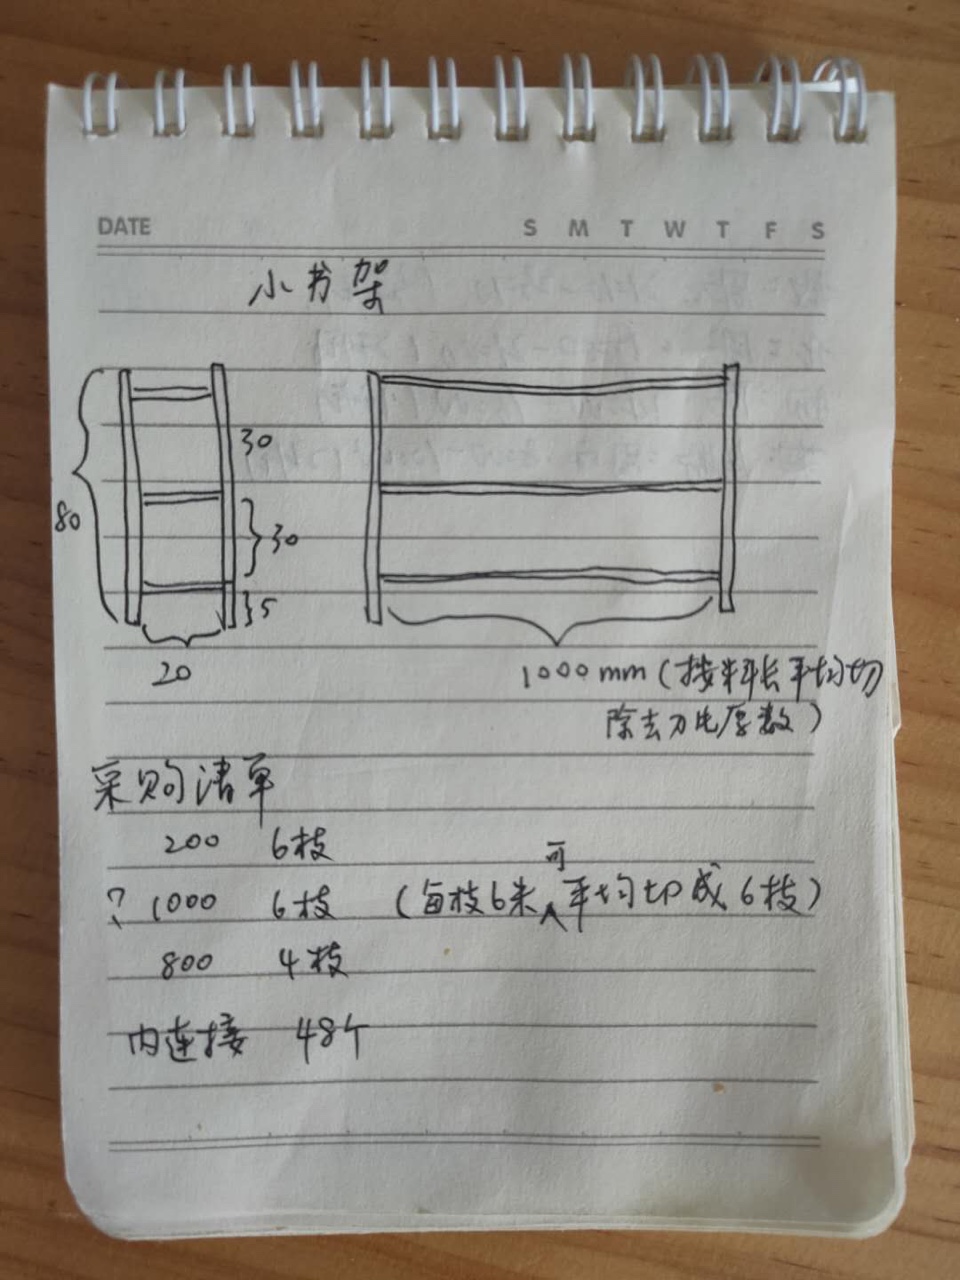 DATE S M T W T F S
小书架
30
80
30
5
20
1000mm（按料长平均切
除去刀片厚数）
采购清单
200 6枝
? 1000 6枝 （每枝6米可平均切成6枝）
800 4枝
内连接 48个